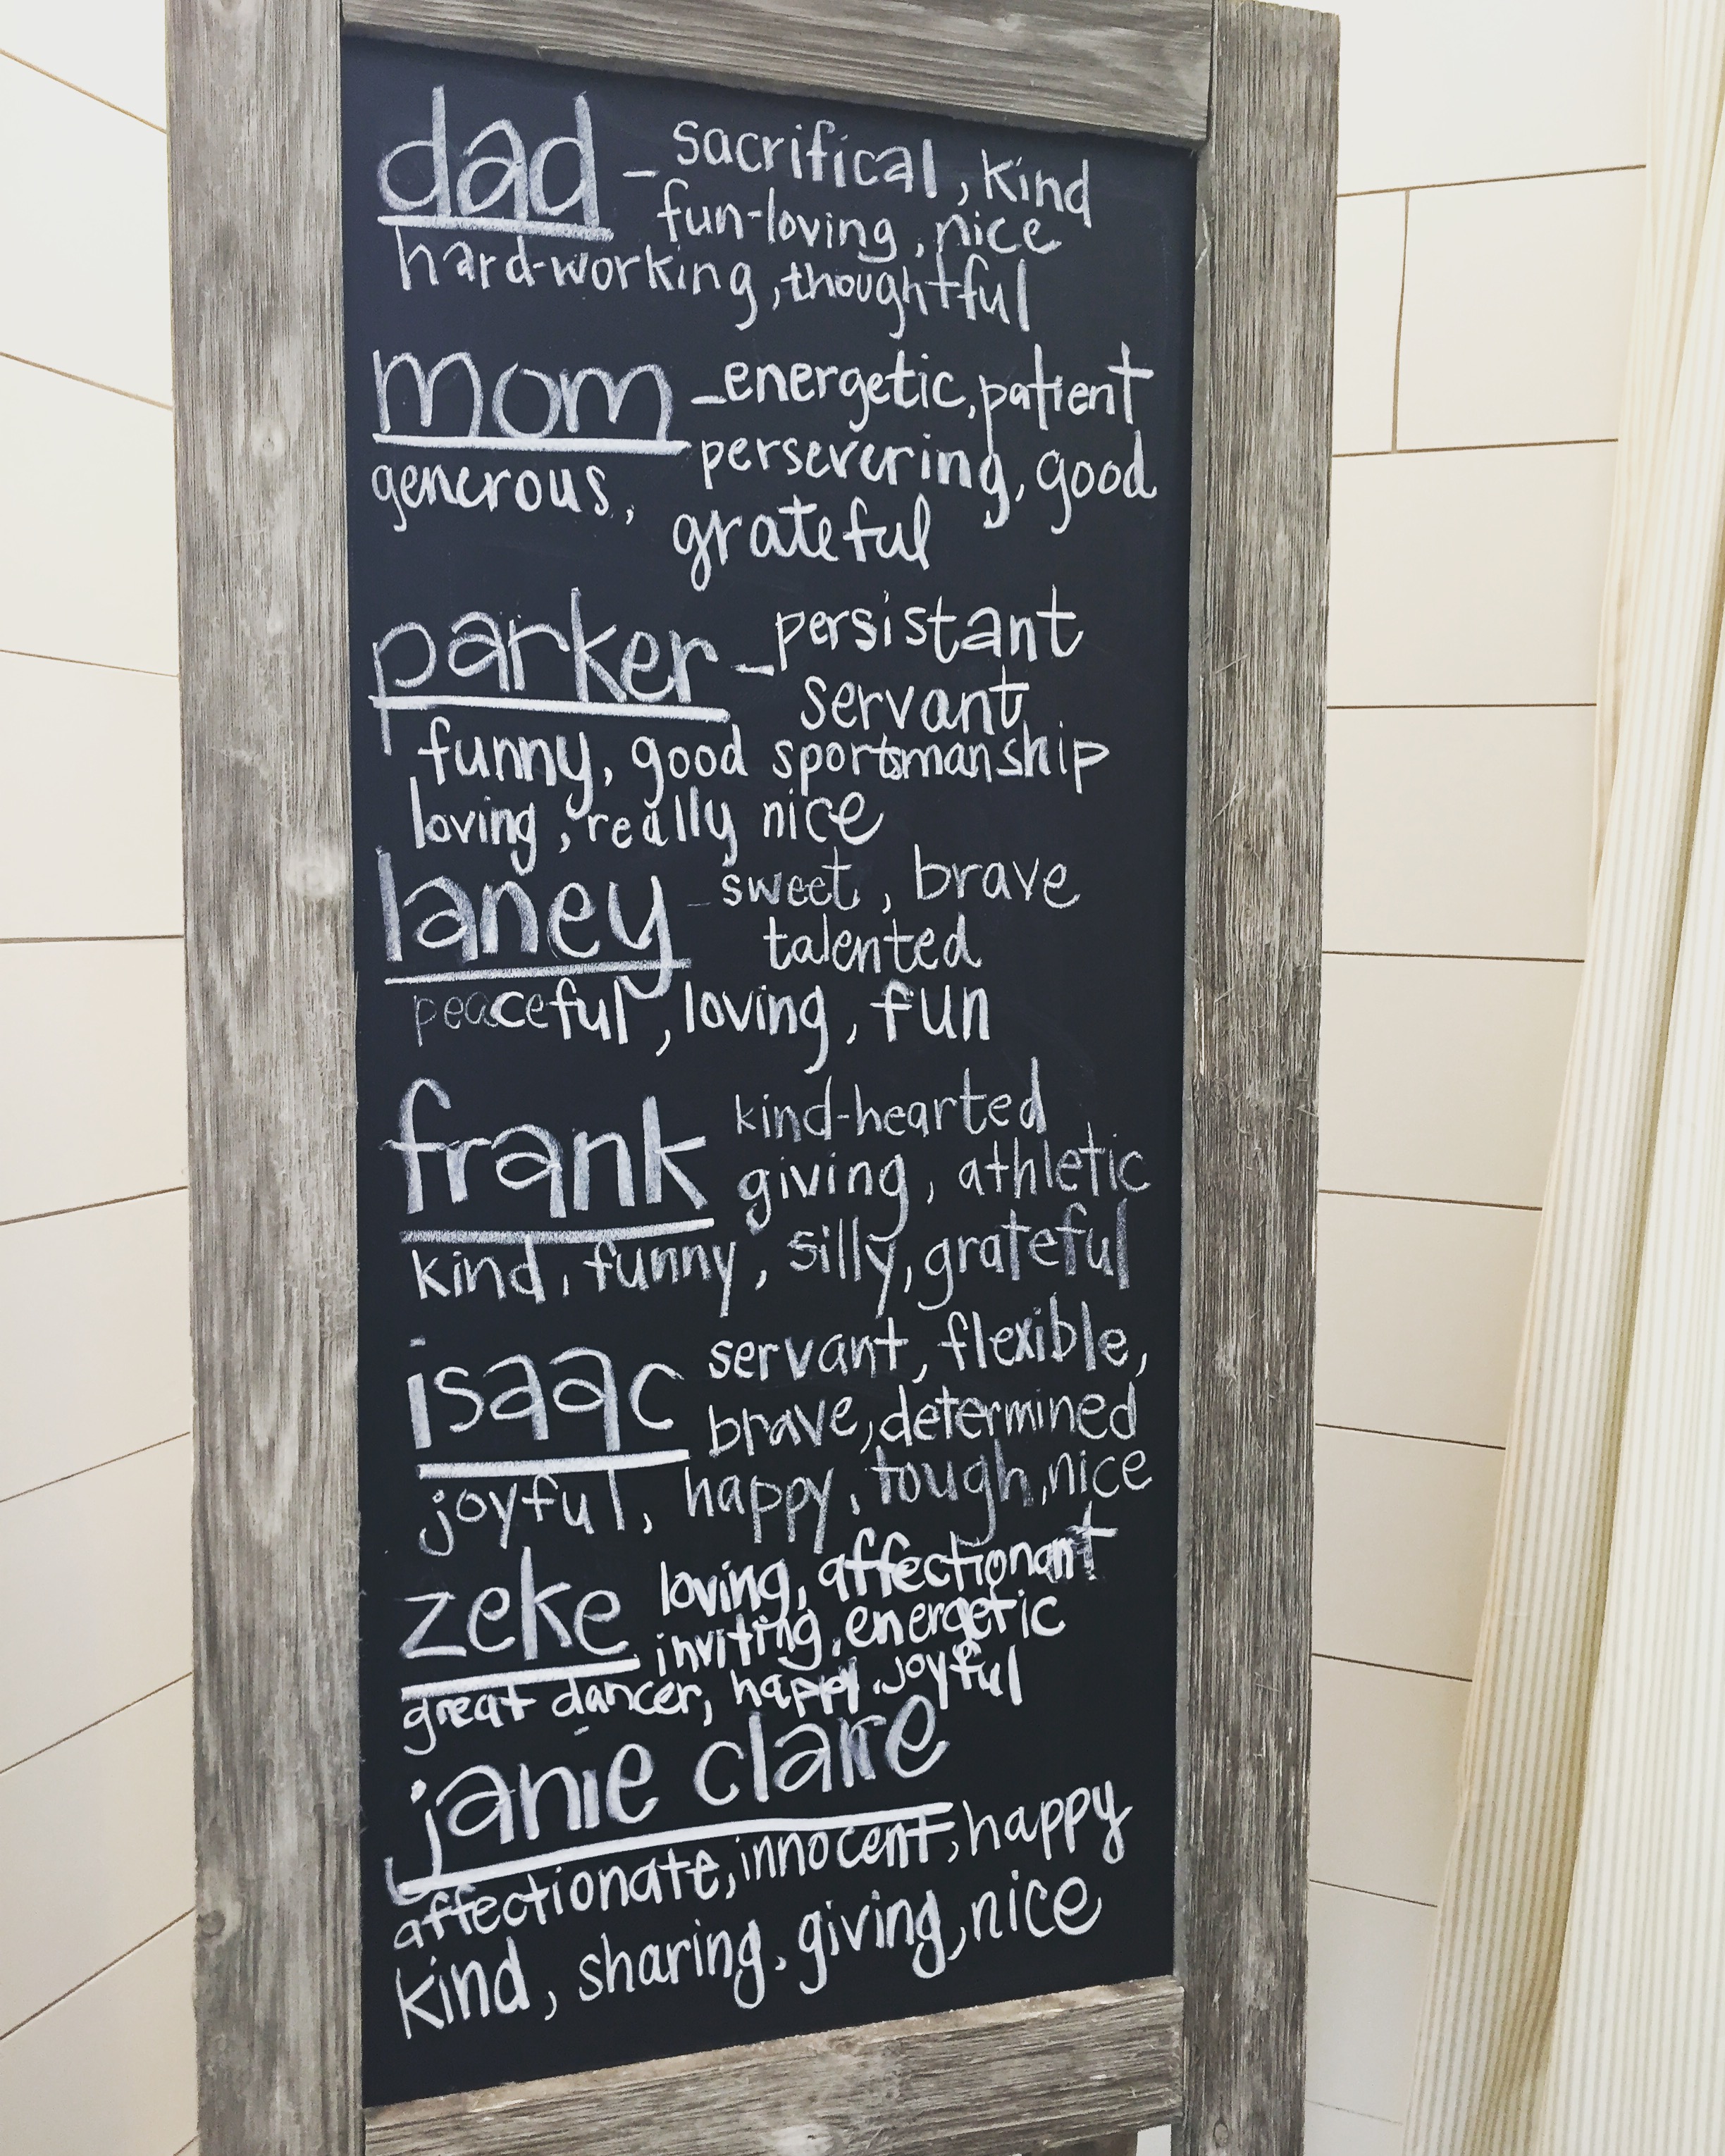 dad - sacrifical, kind
fun-loving, nice
hard-working, thoughtful
mom - energetic, patient
persevering, good
generous, grateful
parker - persistant
servant
funny, good sportsmanship
loving, really nice
laney - sweet, brave
talented
peaceful, loving, fun
frank kind-hearted
giving, athletic
kind, funny, silly, grateful
isaac servant, flexible,
brave, determined
joyful, happy, tough, nice
zeke loving, affectionant
inviting, energetic
great dancer, happy, joyful
janie claire
affectionate, innocent, happy
kind, sharing, giving, nice